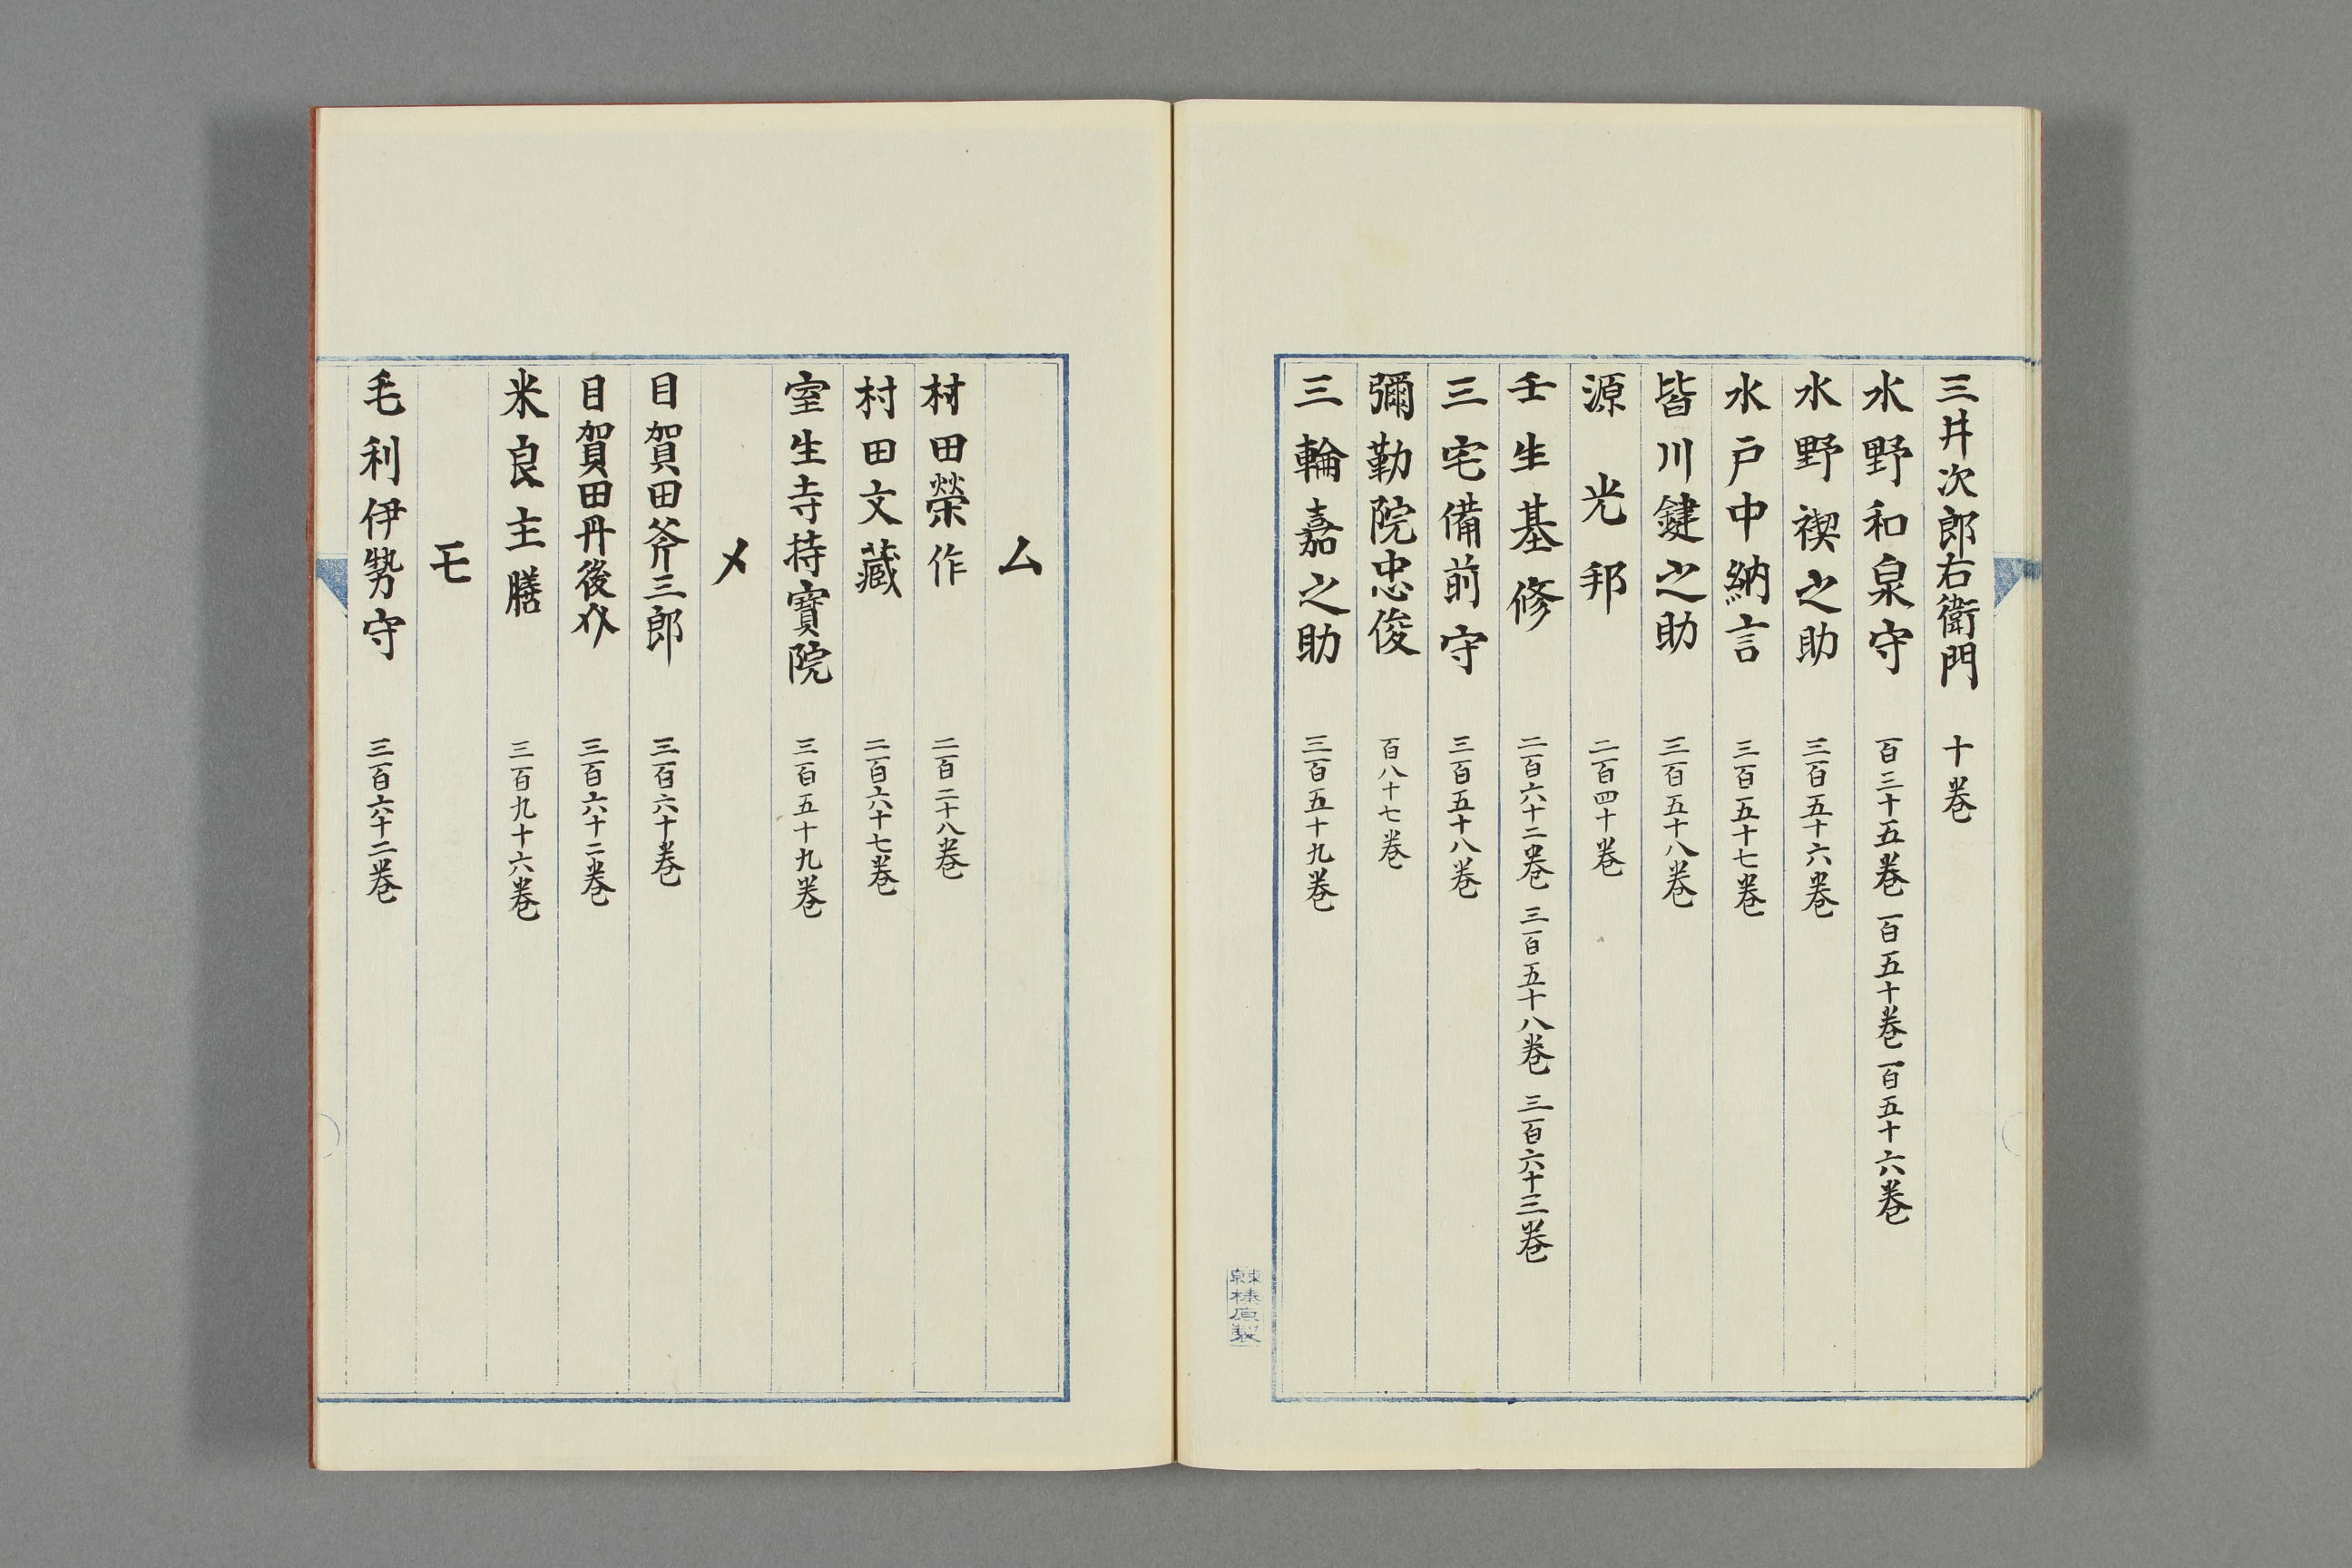 三井次郎右衛門 十巻
水野和泉守 百三十五巻 百五十巻 百五十六巻
水野禊之助 三百五十六巻
水戸中納言 三百五十七巻
皆川鍵之助 三百五十八巻
源 光邦 二百四十巻
壬生基修 二百六十二巻 三百五十八巻 三百六十三巻
三宅備前守 三百五十八巻
彌勒院忠俊 百八十七巻
三輪嘉之助 三百五十九巻
東京榛原製
ム
村田榮作 二百二十八巻
村田文藏 二百六十七巻
室生寺持寶院 三百五十九巻
メ
目賀田斧三郎 三百六十巻
目賀田丹後介 三百六十二巻
米良主膳 三百九十六巻
モ
毛利伊勢守 三百六十二巻